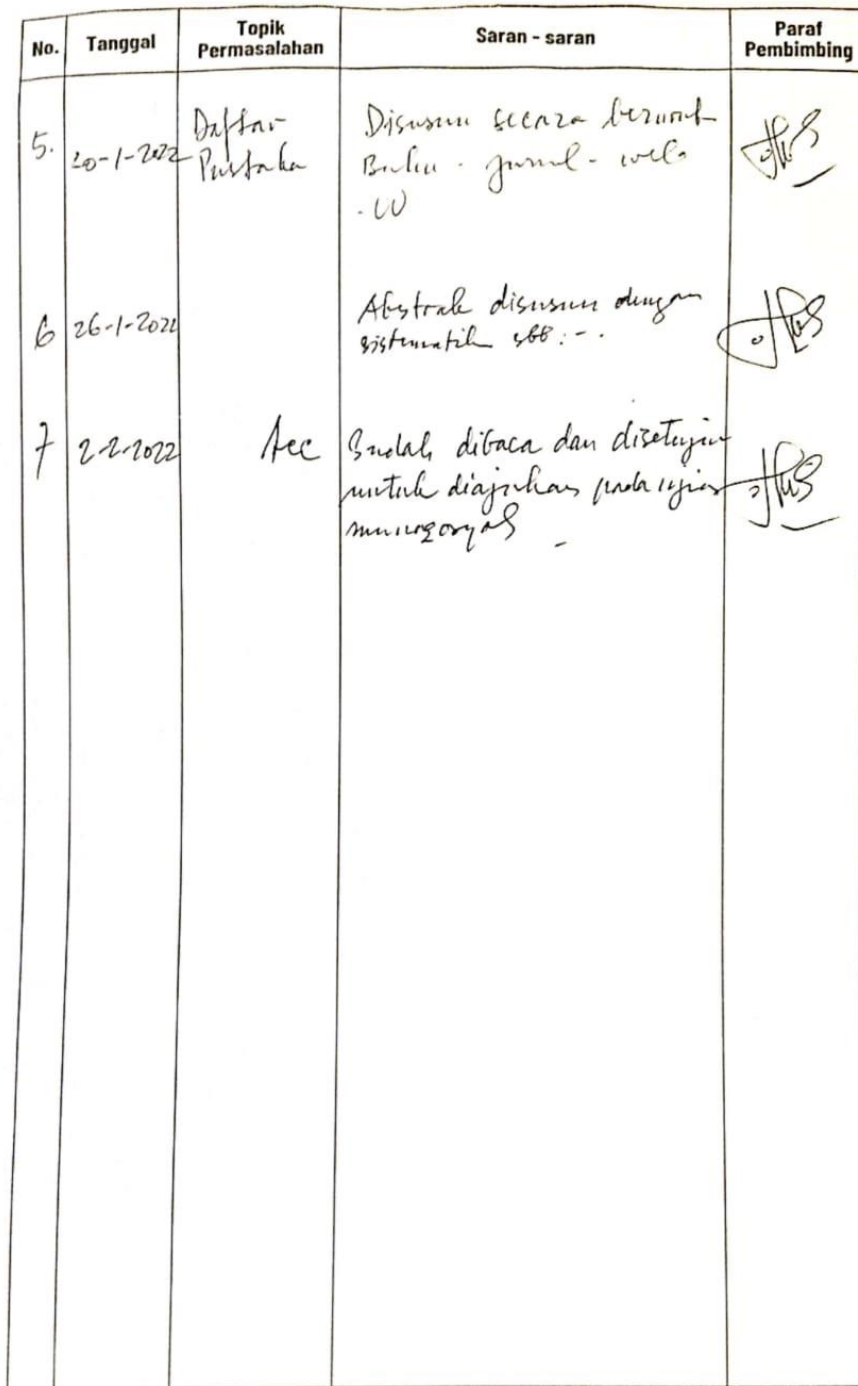 No. Tanggal Topik Permasalahan Saran - saran Paraf Pembimbing
5. 20-1-2022 Daftar Pustaka Disusun secara berurut
Buku - jurnal - web
- UU
6 26-1-2022 Abstrak disusun dengan
sistematik sbb : -.
7 2-2-2022 Acc Sudah dibaca dan disetujui
untuk diajukan pada ujian
munaqosyah